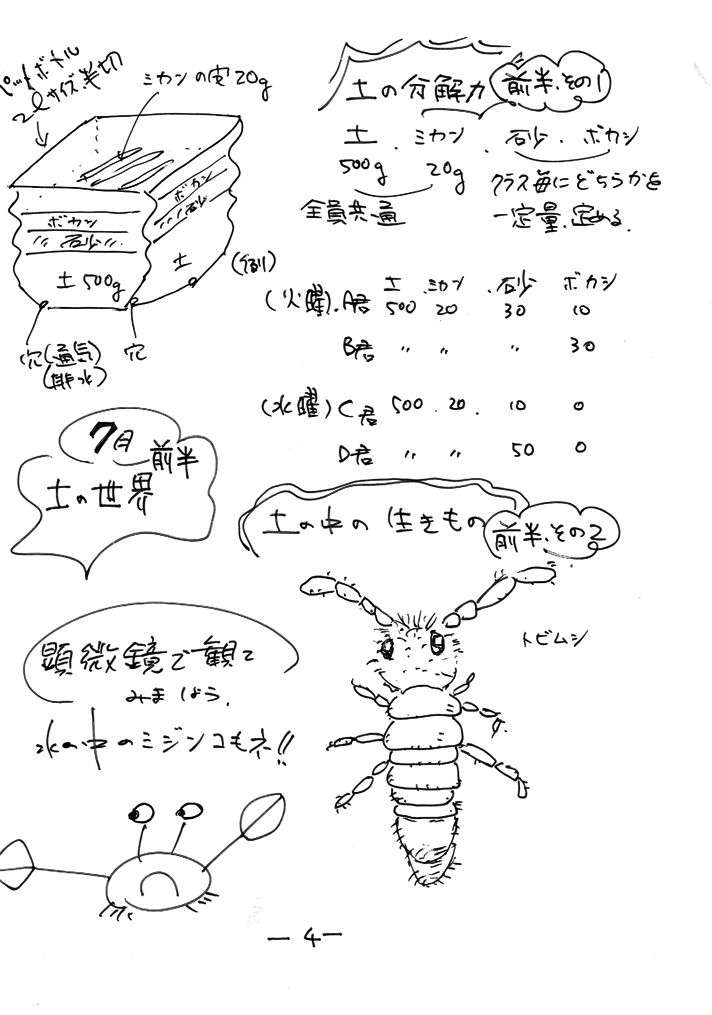 ペットボトル
2ℓサイズ半切
ミカンの実20g
ボカシ
砂
土500g
ボカシ
砂
土
(例)
穴(通気)
(排水)
穴
土の分解力 前半.その1
土.ミカン.砂.ボカシ
500g 20g クラス毎にどちらかを
全員共通 一定量.定める.
土 .ミカン .砂 ボカシ
(火曜).A君 500 20 30 10
B君 〃 〃 〃 30
(水曜) C君 500 . 20 . 10 0
D君 〃 〃 50 0
7月 前半
土の世界
土の中の生きもの 前半.その2
トビムシ
顕微鏡で観て
みましょう.
水の中のミジンコもネ!!
ー4ー